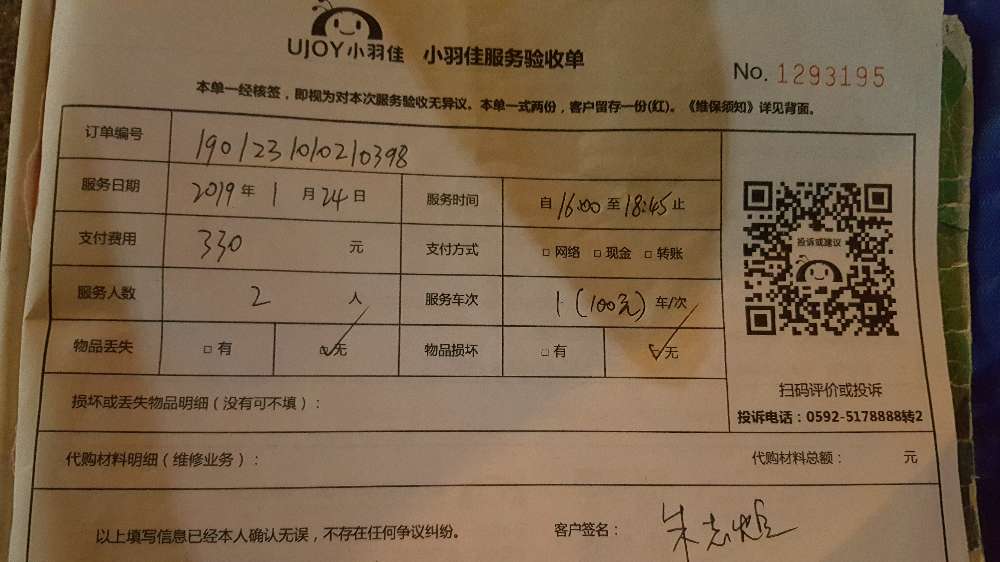 UJOY小羽佳 小羽佳服务验收单
No. 1293195
本单一经核签，即视为对本次服务验收无异议。本单一式两份，客户留存一份(红)。《维保须知》详见背面。
订单编号 1901231010210398
服务日期 2019年1月24日 服务时间 自16:00至18:45止
支付费用 330元 支付方式 □网络 □现金 □转账
服务人数 2人 服务车次 1(100元)车/次
物品丢失 □有 ☑无 物品损坏 □有 ☑无
投诉或建议
扫码评价或投诉
投诉电话：0592-5178888转2
损坏或丢失物品明细（没有可不填）：
代购材料明细（维修业务）： 代购材料总额： 元
以上填写信息已经本人确认无误，不存在任何争议纠纷。 客户签名： 朱志煌